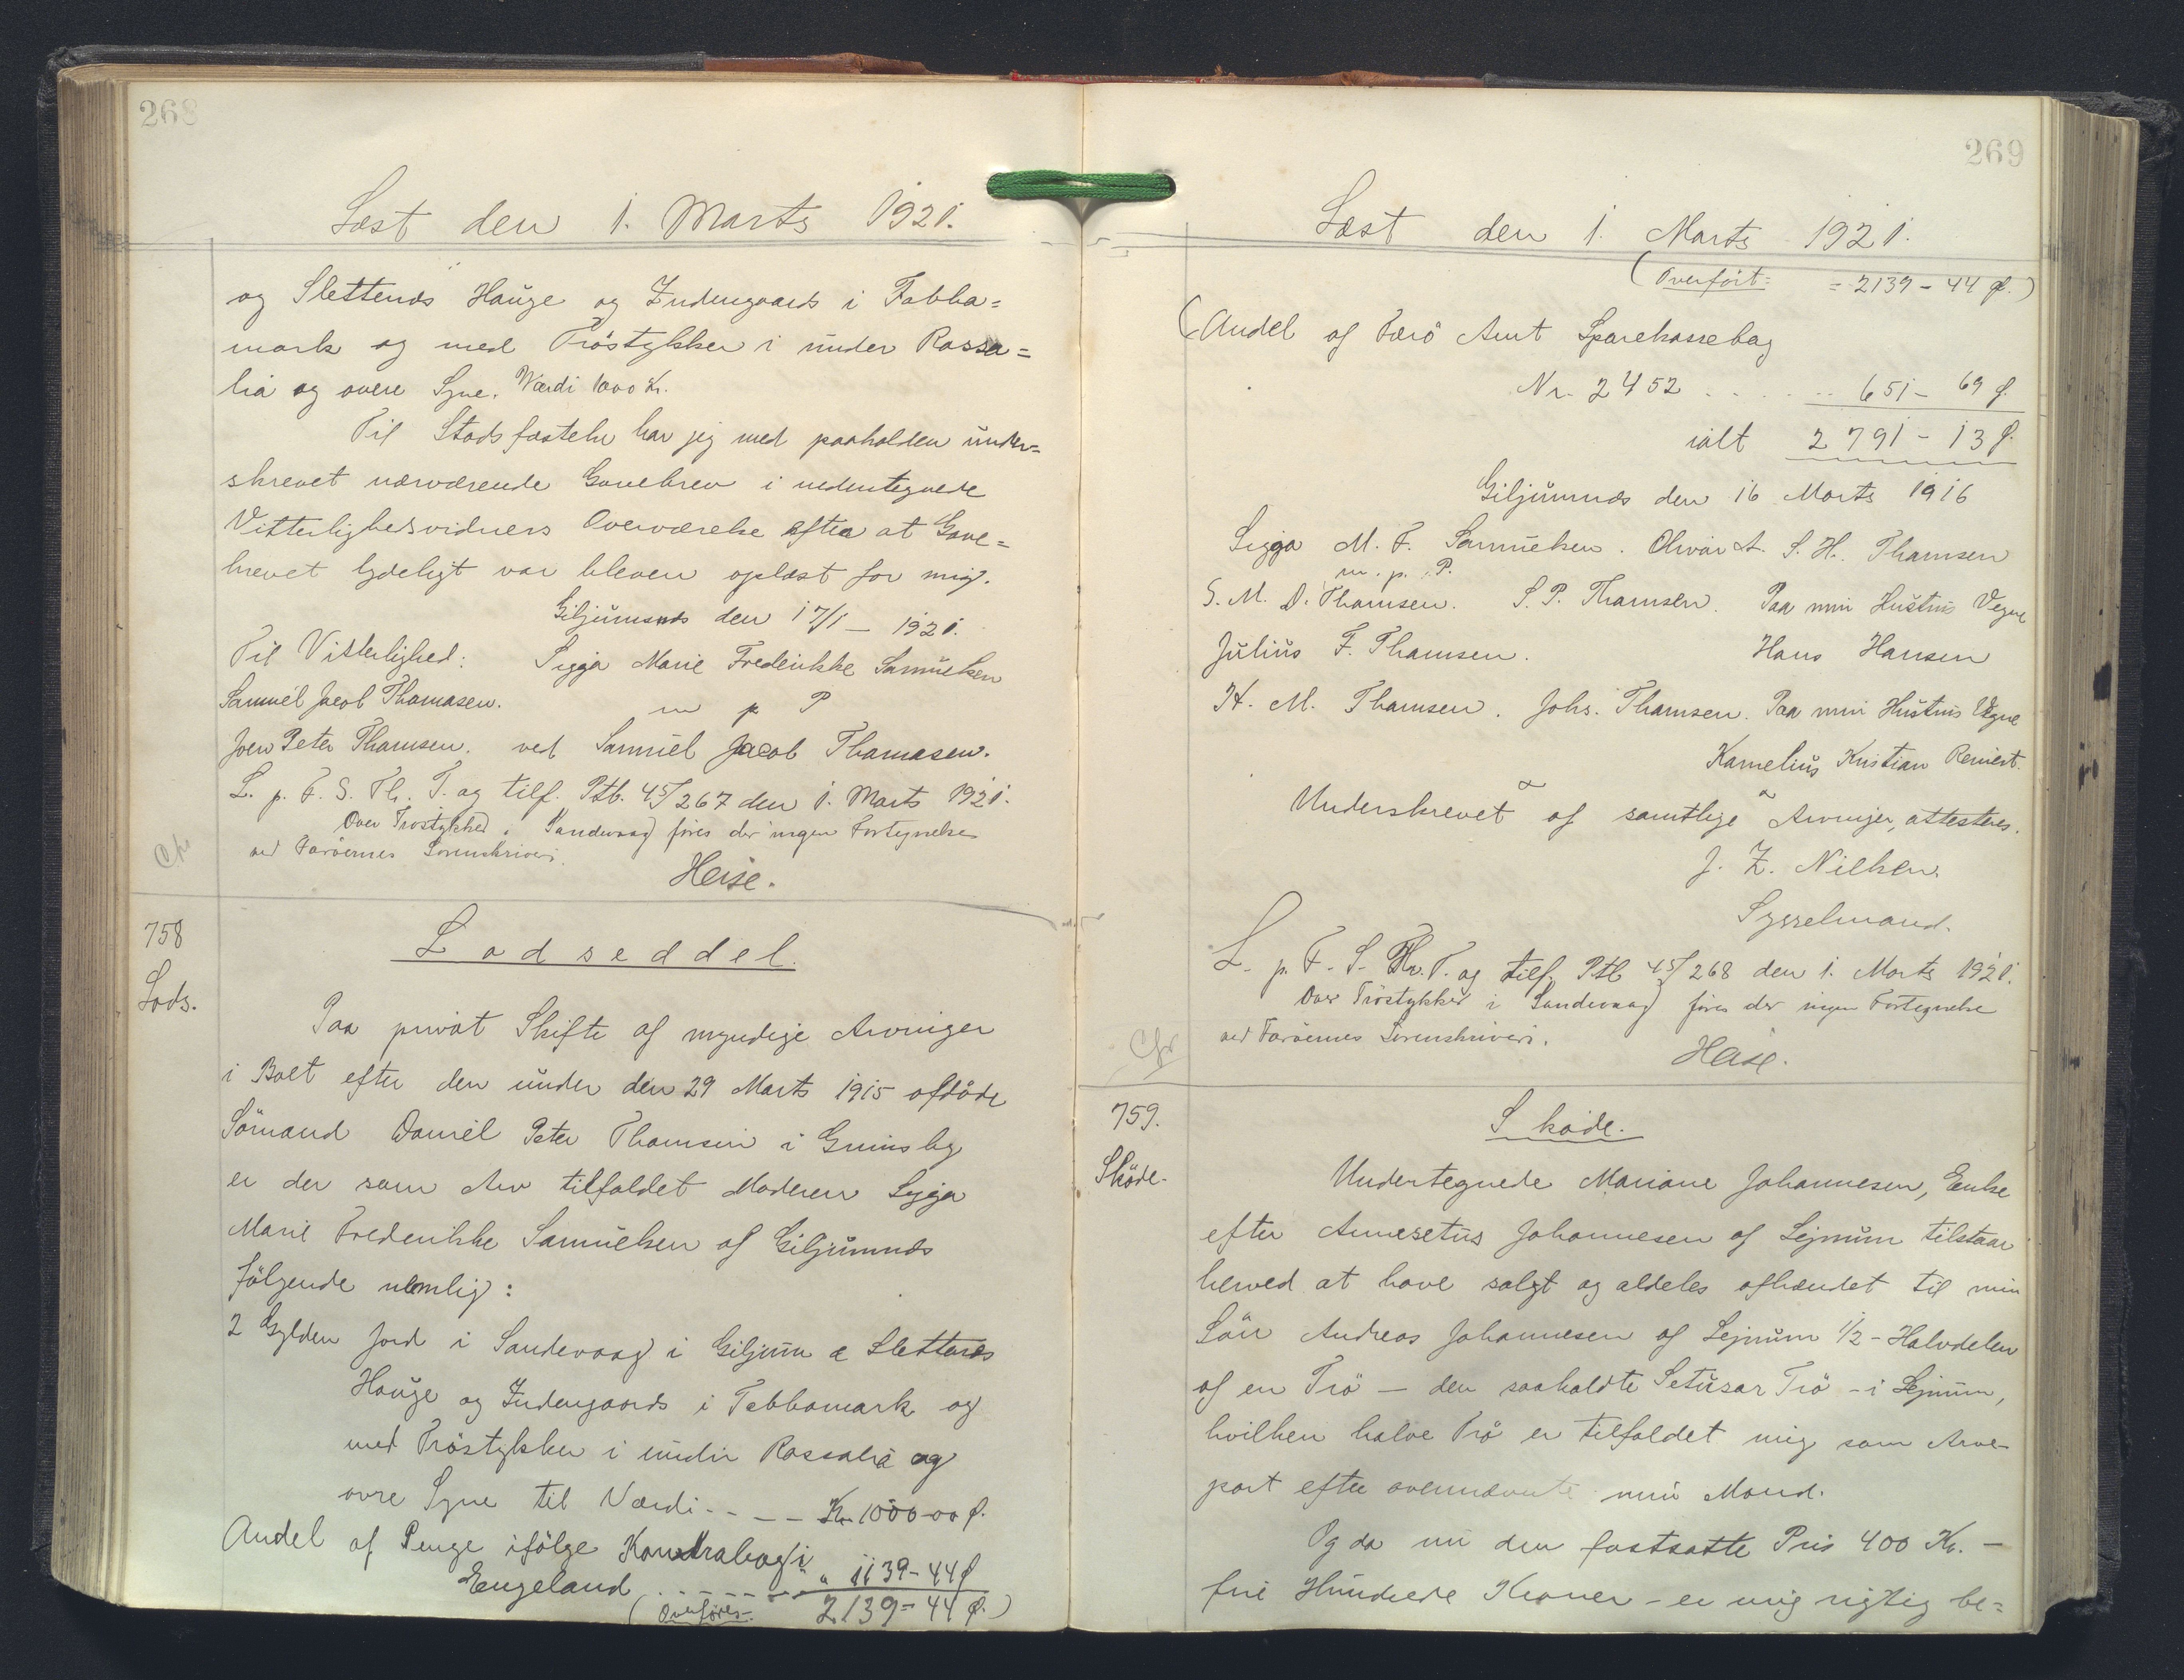 268
Læst den 1. Marts 1921.
og Slettends Hauge og Indengaards i Tabba=
mark og med Tröstykker i under Rossa=
lia og overe Syne. Værdi 1000 Kr.
Til Stadsfæstelse har jeg med paaholden under=
skrevet nærværende Gavebrev i undentegnede
Vitterlighedsvidners Overværelse efter at Gave=
brevet lydeligt var bleven oplæst for mig.
Giljumnæs den 17/1 - 1921.
Til Vitterlighed: Sigga Marie Frederikke Samuelsen
Samuel Jacob Thomasen. m p P
Joen Peter Thomsen. ved Samuel Jacob Thomasen.
L. p. F. S. Th. T. og tilf. Ptb. 45/267 den 1. Marts 1921.
Over Tröstykked i Sandevaag føres der ingen Fortegnelse
ved Færöernes Sorenskriveri.
Heise.
758
Lods.
Lodseddel.
Paa privat Skifte af myndige Arvinger
i Boet efter den under den 29 Marts 1915 afdöde
Sömand Daniel Peter Thomsen i Grimsby
er der som Arv tilfaldet Moderen Sigga
Marie Frederikke Samuelsen af Giljumnæs
fölgende nemlig:
2 Gylden Jord i Sandevaag i Giljum a Slettanes
Hauge og Indengaards i Tabbamark og
med Tröstykker i undir Rossalia og
ovre Syne til Værdi - - - - Kr 1000-00 ø.
Andel af Penge ifölge Kontrabog i
Engeland . - - - - - - " 1139-44 ø
(Overföres:- 2139 = 44 Ø.)
269
Læst den 1. Marts 1921.
(Overfört:- = 2139 - 44 ø.)
(Andel af Færö Amt Sparekassebog
Nr. 2452 . . . . . . 651 - 69 ø.
ialt 2791 - 13 ø.
Giljumnæs den 16 Marts 1916
Sigga M. F. Samuelsen. Olivar A. S. H. Thomsen
m. p. P.
S. M. D. Thomsen. S. P. Thomsen. Paa min Hustrus Vegne
Julius F. Thomsen. Hans Hansen
H. M. Thomsen. Johs. Thomsen. Paa min Hustrus Vegne
Kornelius Kristian Reinert.
Underskrevet af samtlige Arvinger, attesteres.
J. Z. Nielsen.
Sysselmand.
L. p. F. S. Th. T. og tilf. Ptb 45/268 den 1. Marts 1921.
Over Tröstykker i Sandevaag føres der ingen Fortegnelse
ved Færöernes Sorenskriveri.
Heise.
759.
Sköde.
Sköde.
Undertegnede Mariane Johannesen, Enke
efter Annesetus Johannesen af Lejnum tilstaar
herved at have solgt og aldeles afhændet til min
Sön Andreas Johannesen af Lejnum 1/2 - Halvdelen
af en Trö - den saakaldte Setusar Trö - i Lejnum,
hvilken halve Trö er tilfaldet mig som Arve-
part efter ovennævnte min Mand.
Og da nu den fastsatte Pris 400 Kr. -
fire Hundrede Kroner - er mig rigtig be=